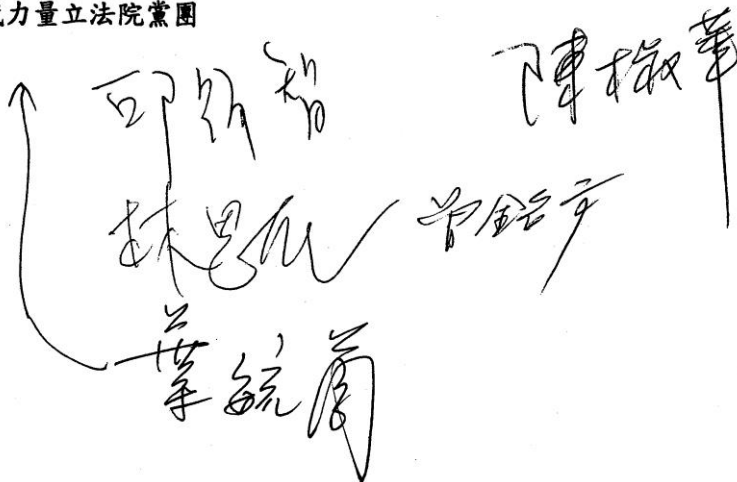 力量立法院黨團
邱顯智 陳椒華
林思銘 曾銘宗
葉毓蘭